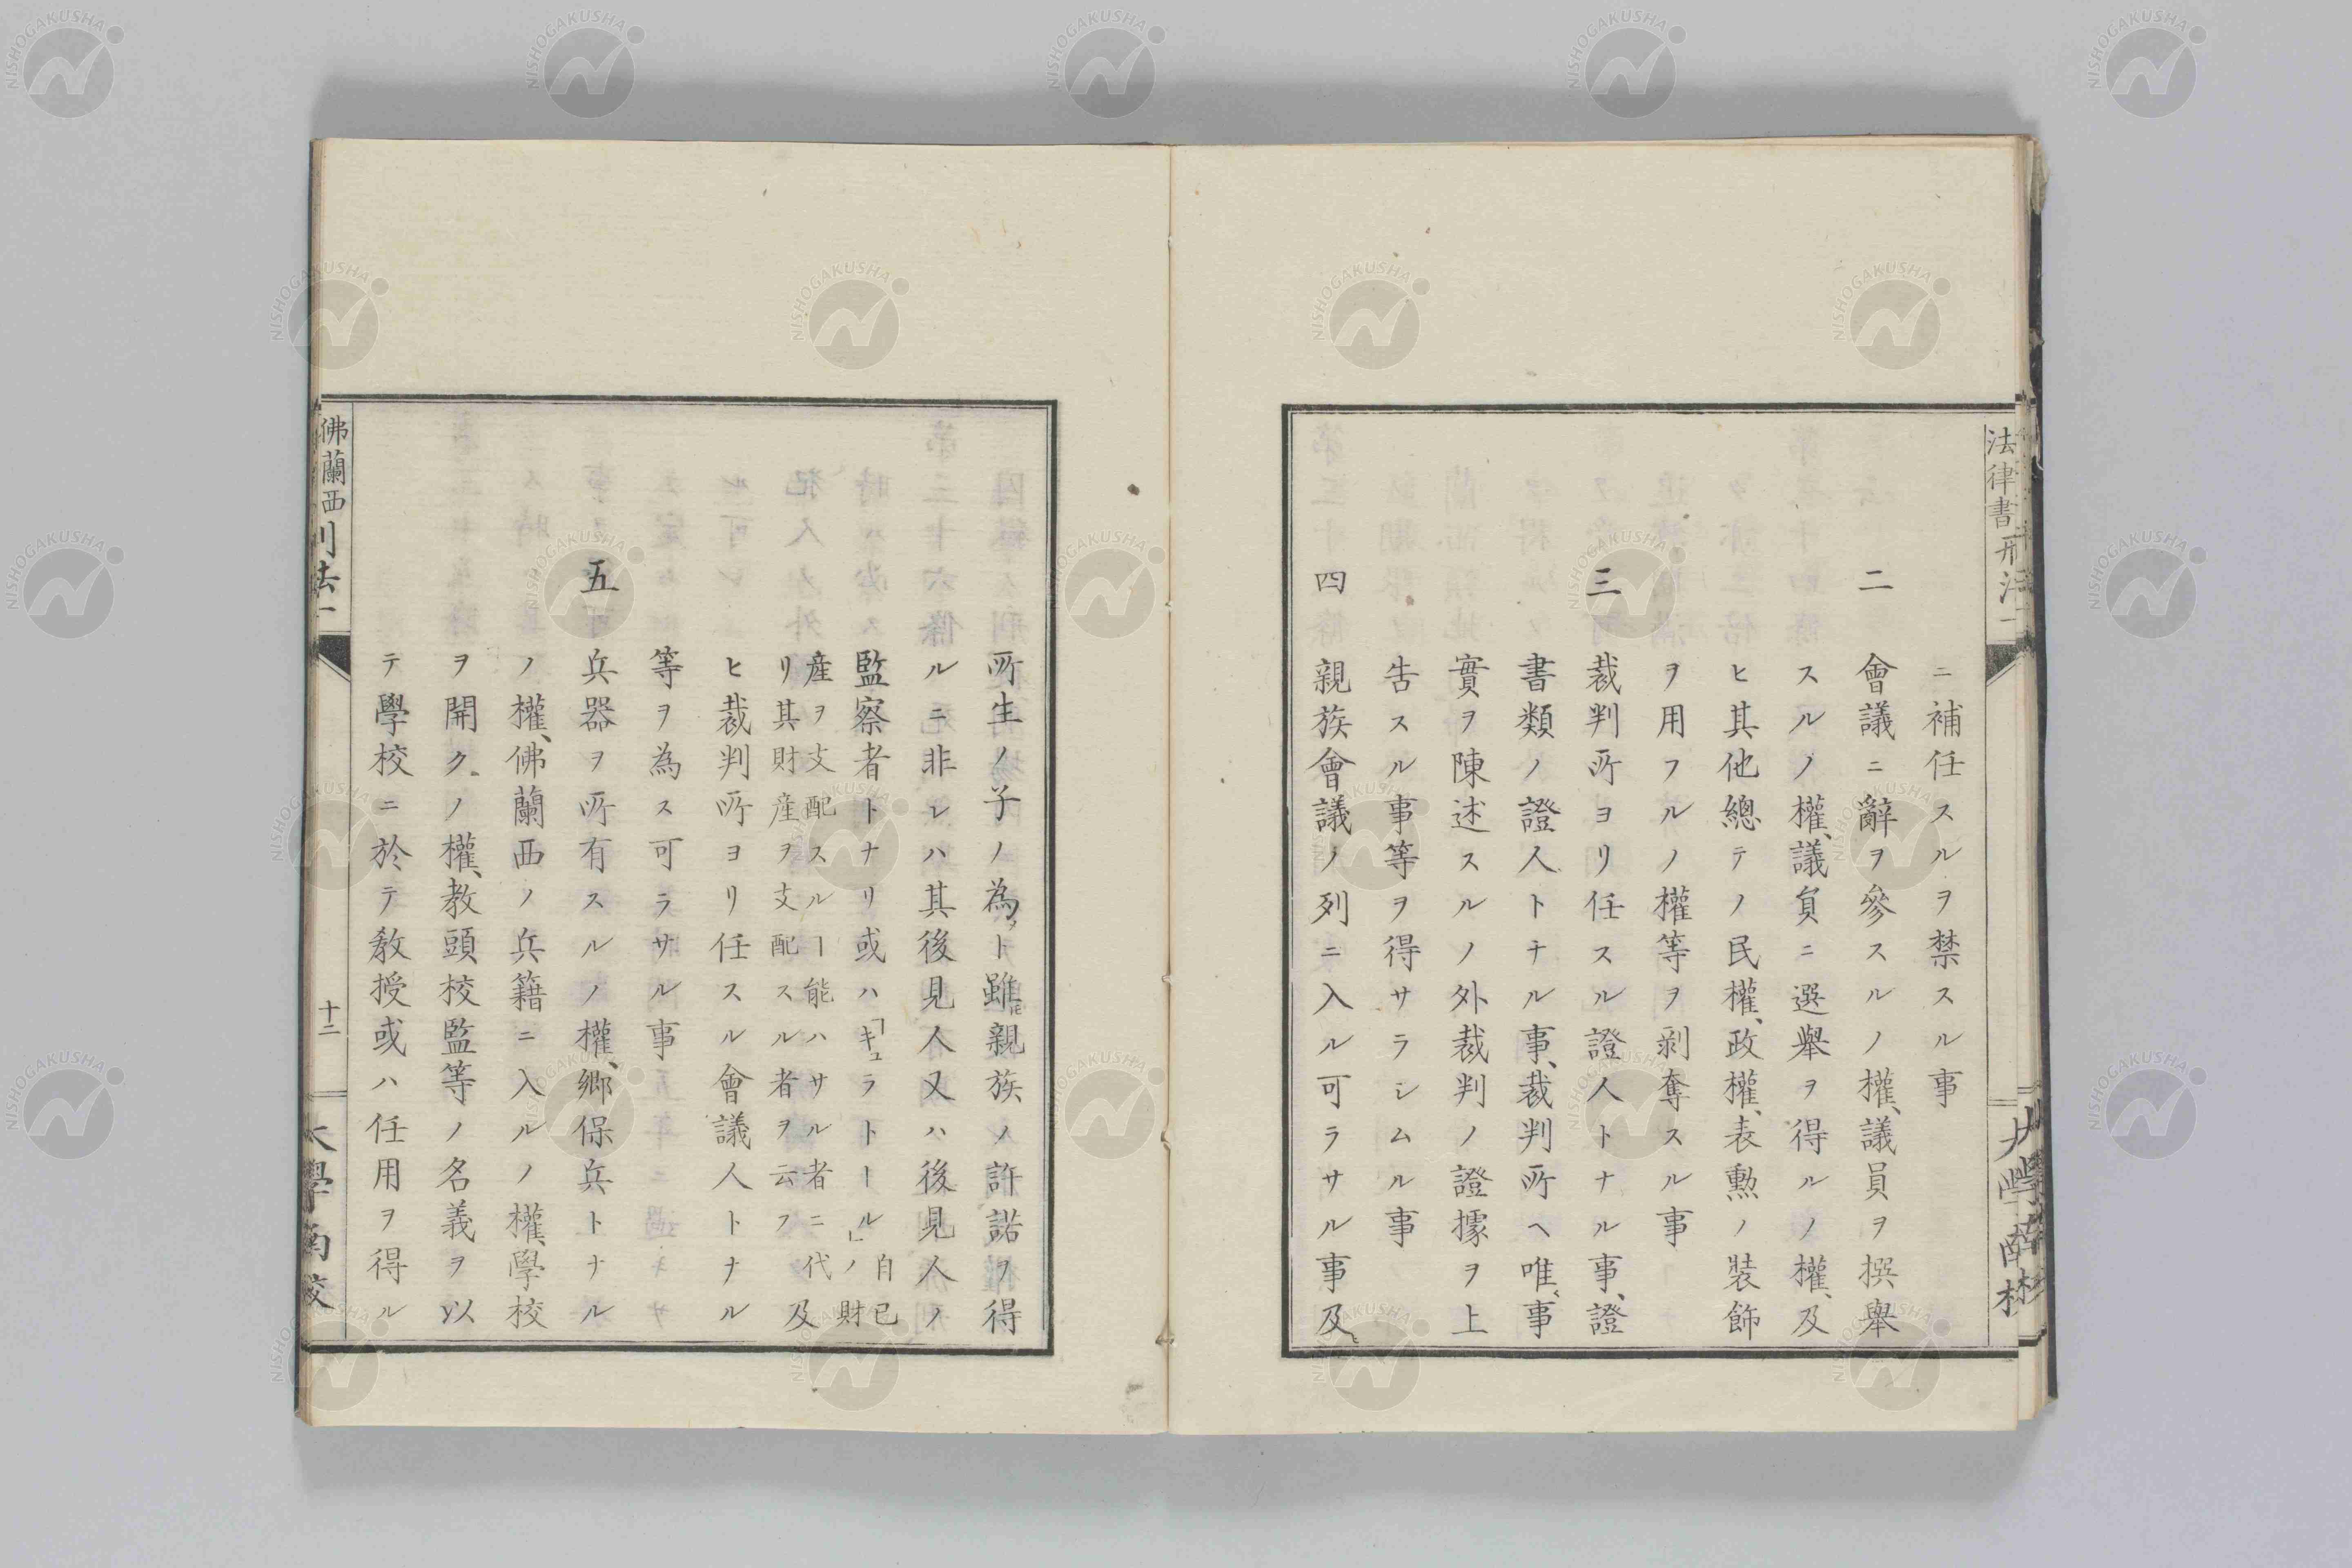 法律書 刑法一
ニ補任スルヲ禁スル事
二 會議ニ辭ヲ參スルノ權、議員ヲ撰舉
スルノ權、議負ニ選舉ヲ得ルノ權、及
ヒ其他總テノ民權、政權、表勲ノ裝飾
ヲ用フルノ權等ヲ剥奪スル事
三 裁判所ヨリ任スル證人トナル事、證
書類ノ證人トナル事、裁判所ヘ唯、事
實ヲ陳述スルノ外裁判ノ證據ヲ上
告スル事等ヲ得サラシムル事
四 親族會議ノ列ニ入ル可ラサル事及ヒ
所生ノ子ノ為メト雖𪜈親族ノ許諾ヲ得
ルニ非レハ其後見人又ハ後見人ノ
監察者トナリ或ハ「キュラトール」ノ 自己ノ財
産ヲ支配スルヿ能ハサル者ニ代
リ其財産ヲ支配スル者ヲ云フ 及
ヒ裁判所ヨリ任スル會議人トナル
等ヲ為ス可ラサル事
五 兵器ヲ所有スルノ權、鄉保兵トナル
ノ權、佛蘭西ノ兵籍ニ入ルノ權、學校
ヲ開クノ權、教頭校監等ノ名義ヲ以
テ學校ニ於テ教授或ハ任用ヲ得ル
佛蘭西刑法一
十二
大學南校
NISHOGAKUSHA